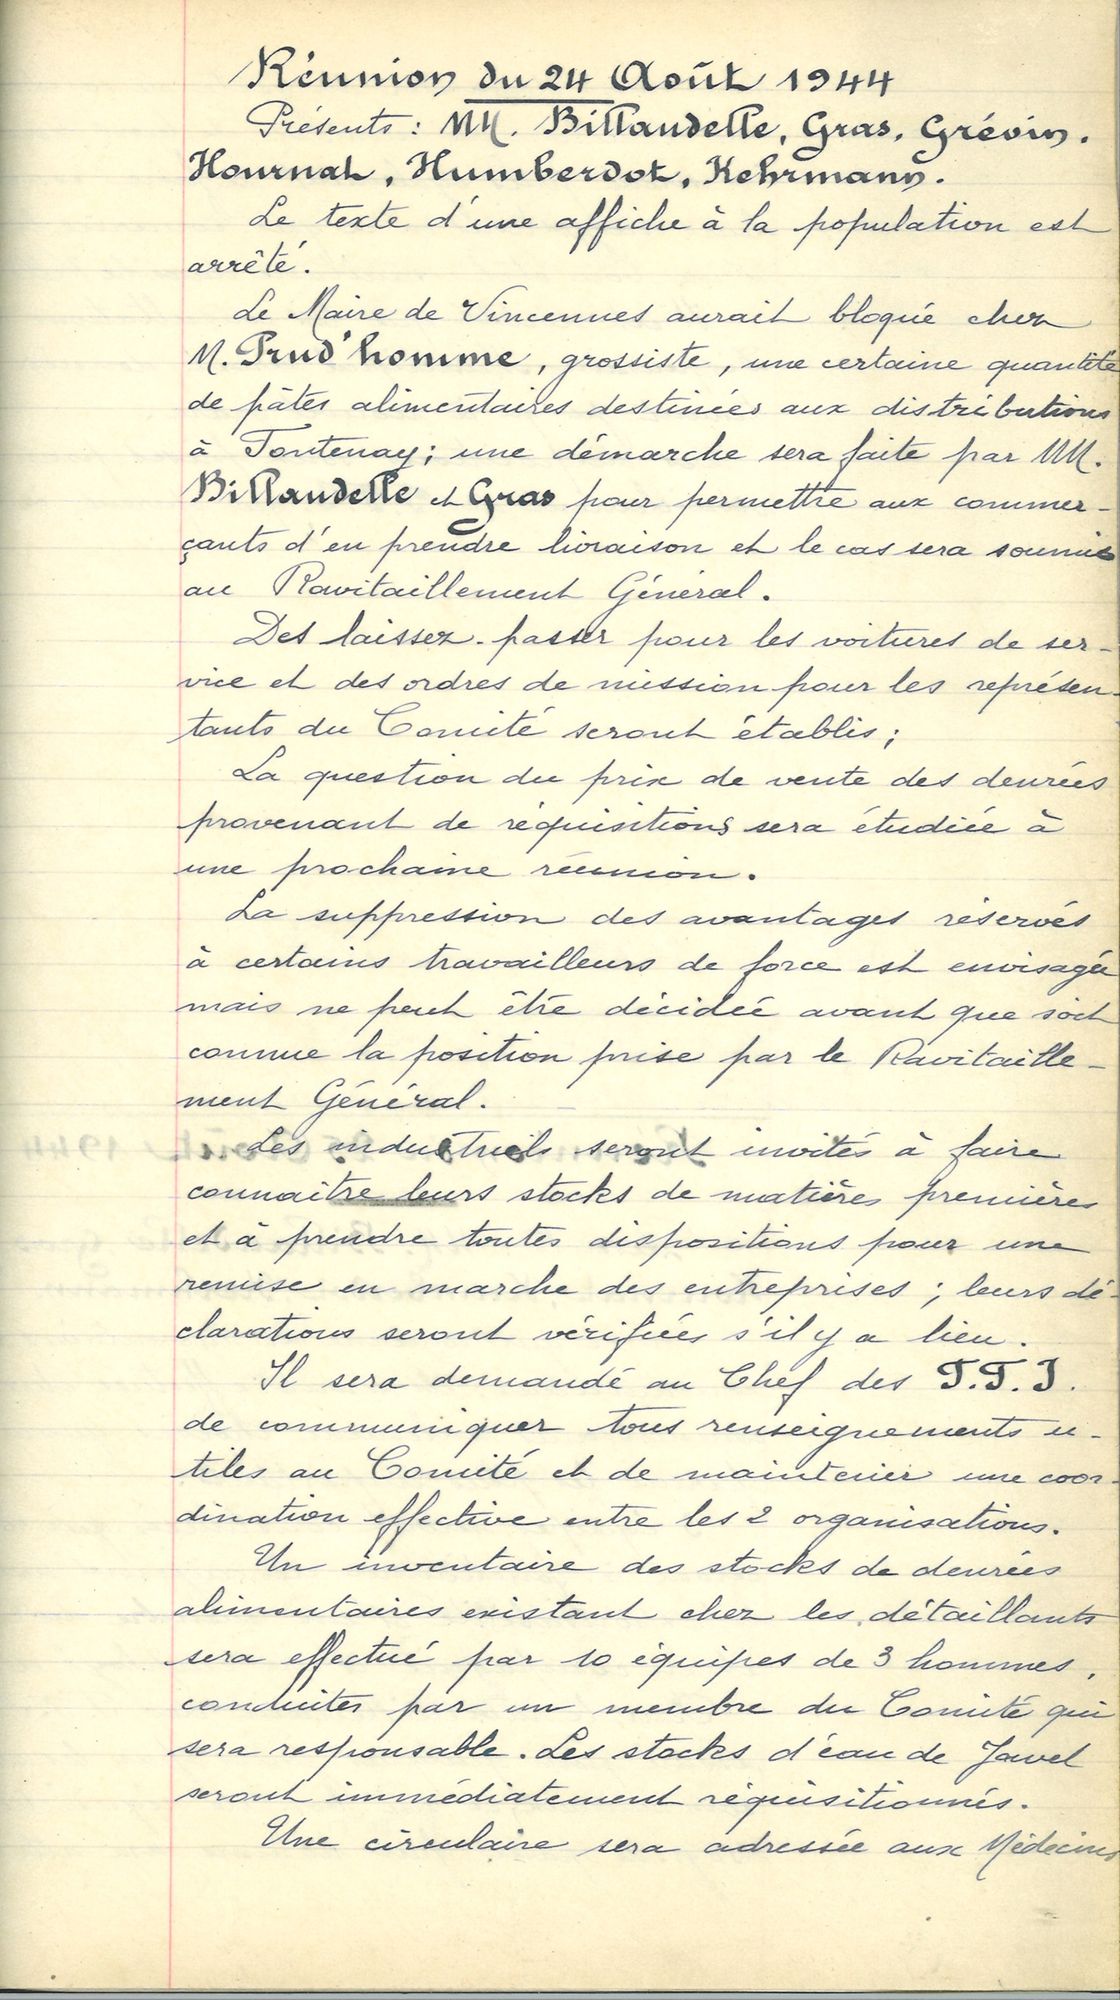 Réunion du 24 Août 1944
Présents : MM. Billaudelle, Gras, Grévin,
Hournat, Humberdot, Kehrmann.
Le texte d'une affiche à la population est
arrêté.
Le Maire de Vincennes aurait bloqué chez
M. Prud'homme, grossiste, une certaine quantité
de pâtes alimentaires destinées aux distributions
à Fontenay ; une démarche sera faite par MM.
Billaudelle et Gras pour permettre aux commer-
çants d'en prendre livraison et le cas sera soumis
au Ravitaillement Général.
Des laissez-passer pour les voitures de ser-
vice et des ordres de mission pour les représen-
tants du Comité seront établis ;
La question du prix de vente des denrées
provenant de réquisitions sera étudiée à
une prochaine réunion.
La suppression des avantages réservés
à certains travailleurs de force est envisagée
mais ne peut être décidée avant que soit
connue la position prise par le Ravitaille-
ment Général.
Les industriels seront invités à faire
connaître leurs stocks de matières premières
et à prendre toutes dispositions pour une
remise en marche des entreprises ; leurs dé-
clarations seront vérifiées s'il y a lieu.
Il sera demandé au Chef des F.F.I.
de communiquer tous renseignements u-
tiles au Comité et de maintenir une coor-
dination effective entre les 2 organisations.
Un inventaire des stocks de denrées
alimentaires existant chez les détaillants
sera effectué par 10 équipes de 3 hommes,
conduites par un membre du Comité qui
sera responsable. Les stocks d'eau de Javel
seront immédiatement réquisitionnés.
Une circulaire sera adressée aux Médecins